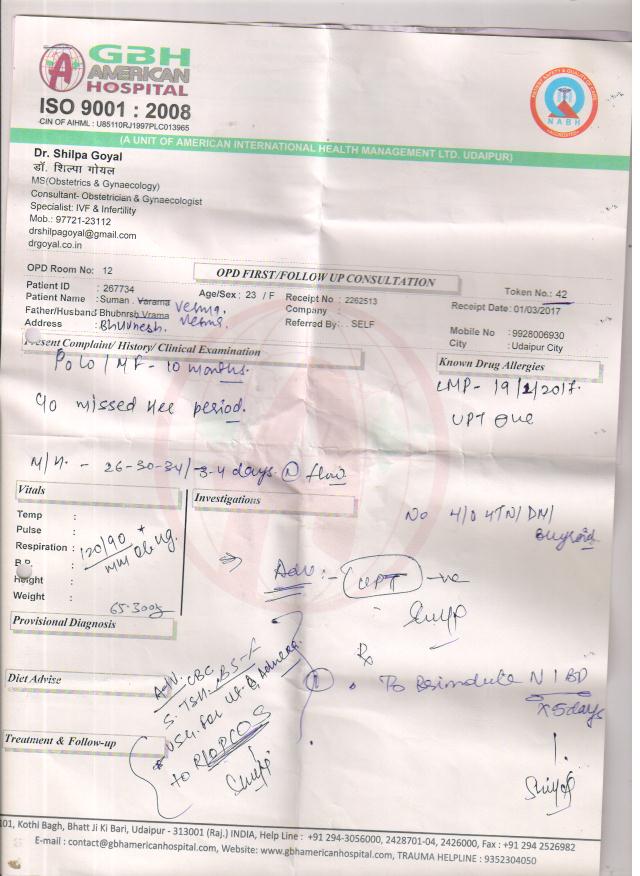 GBH
AMERICAN
HOSPITAL
ISO 9001 : 2008
CIN OF AIHML : U85110RJ1997PLC013965
NABH
(A UNIT OF AMERICAN INTERNATIONAL HEALTH MANAGEMENT LTD. UDAIPUR)
Dr. Shilpa Goyal
डॉ. शिल्पा गोयल
MS(Obstetrics & Gynaecology)
Consultant- Obstetrician & Gynaecologist
Specialist: IVF & Infertility
Mob.: 97721-23112
drshilpagoyal@gmail.com
drgoyal.co.in
OPD Room No: 12
OPD FIRST/FOLLOW UP CONSULTATION
Token No.: 42
Patient ID : 267734
Age/Sex : 23 / F
Receipt No : 2262513
Receipt Date: 01/03/2017
Patient Name : Suman Varama Verma
Company :
Father/Husband Bhubnrsh Vrama Verma
Referred By: . SELF
Mobile No : 9928006930
Address : Bhuvnesh
City : Udaipur City
Present Complaint/ History/ Clinical Examination
Known Drug Allergies
P0L0 / MF - 10 months.
LMP - 19/2/2017.
missed her period.
UPT
M/H. - 26-30-34/3-4 days flow
Vitals
Investigations
Temp :
Pulse :
Respiration :
B.P. :
120/90
mm of Hg.
Height :
Weight :
65.300
No H/O HTN/DM/
Adv :- UPT -ve
Provisional Diagnosis
Rx
Diet Advise
Adv: CBC
S. TSH, BS-F
USG. for Ut & Adnexa
to R/O PCOS
To
x 5 days
Treatment & Follow-up
101, Kothi Bagh, Bhatt Ji Ki Bari, Udaipur - 313001 (Raj.) INDIA, Help Line : +91 294-3056000, 2428701-04, 2426000, Fax : +91 294 2526982
E-mail : contact@gbhamericanhospital.com, Website: www.gbhamericanhospital.com, TRAUMA HELPLINE : 9352304050